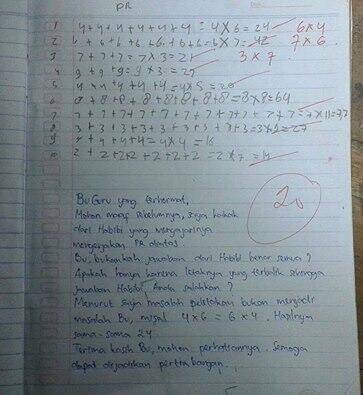 PR
1 4+4+4+4+4+4 = 4×6 = 24 6×4
2 6+6+6+6+6+6+6 = 6×7 = 42 7×6
3 7+7+7 = 7×3 = 21 3×7
4 9+9+9 = 9×3 = 27
5 4+4+4+4+4 = 4×5 = 20
6 8+8+8+8+8+8+8+8 = 8×8 = 64
7 7+7+7+7+7+7+7+7+7+7+7 = 7×11 = 77
8 3+3+3+3+3+3+3+3+3 = 3×9 = 27
9 4+4+4+4 = 4×4 = 16
10 2+2+2+2+2+2+2 = 2×7 = 14
20
Bu Guru yang terhormat,
Mohon maaf sebelumnya, saya kakak
dari Habibi yang mengajarinya
mengerjakan PR diatas.
Bu, bukankah jawaban dari Habibi benar semua?
Apakah hanya karena letaknya yang terbalik sehingga
jawaban Habibi Anda salahkan?
Menurut saya masalah peletakan bukan menjadi
masalah Bu, misal 4×6 = 6×4. Hasilnya
sama-sama 24.
Terima kasih Bu, mohon perhatiannya. Semoga
dapat dijadikan pertimbangan.